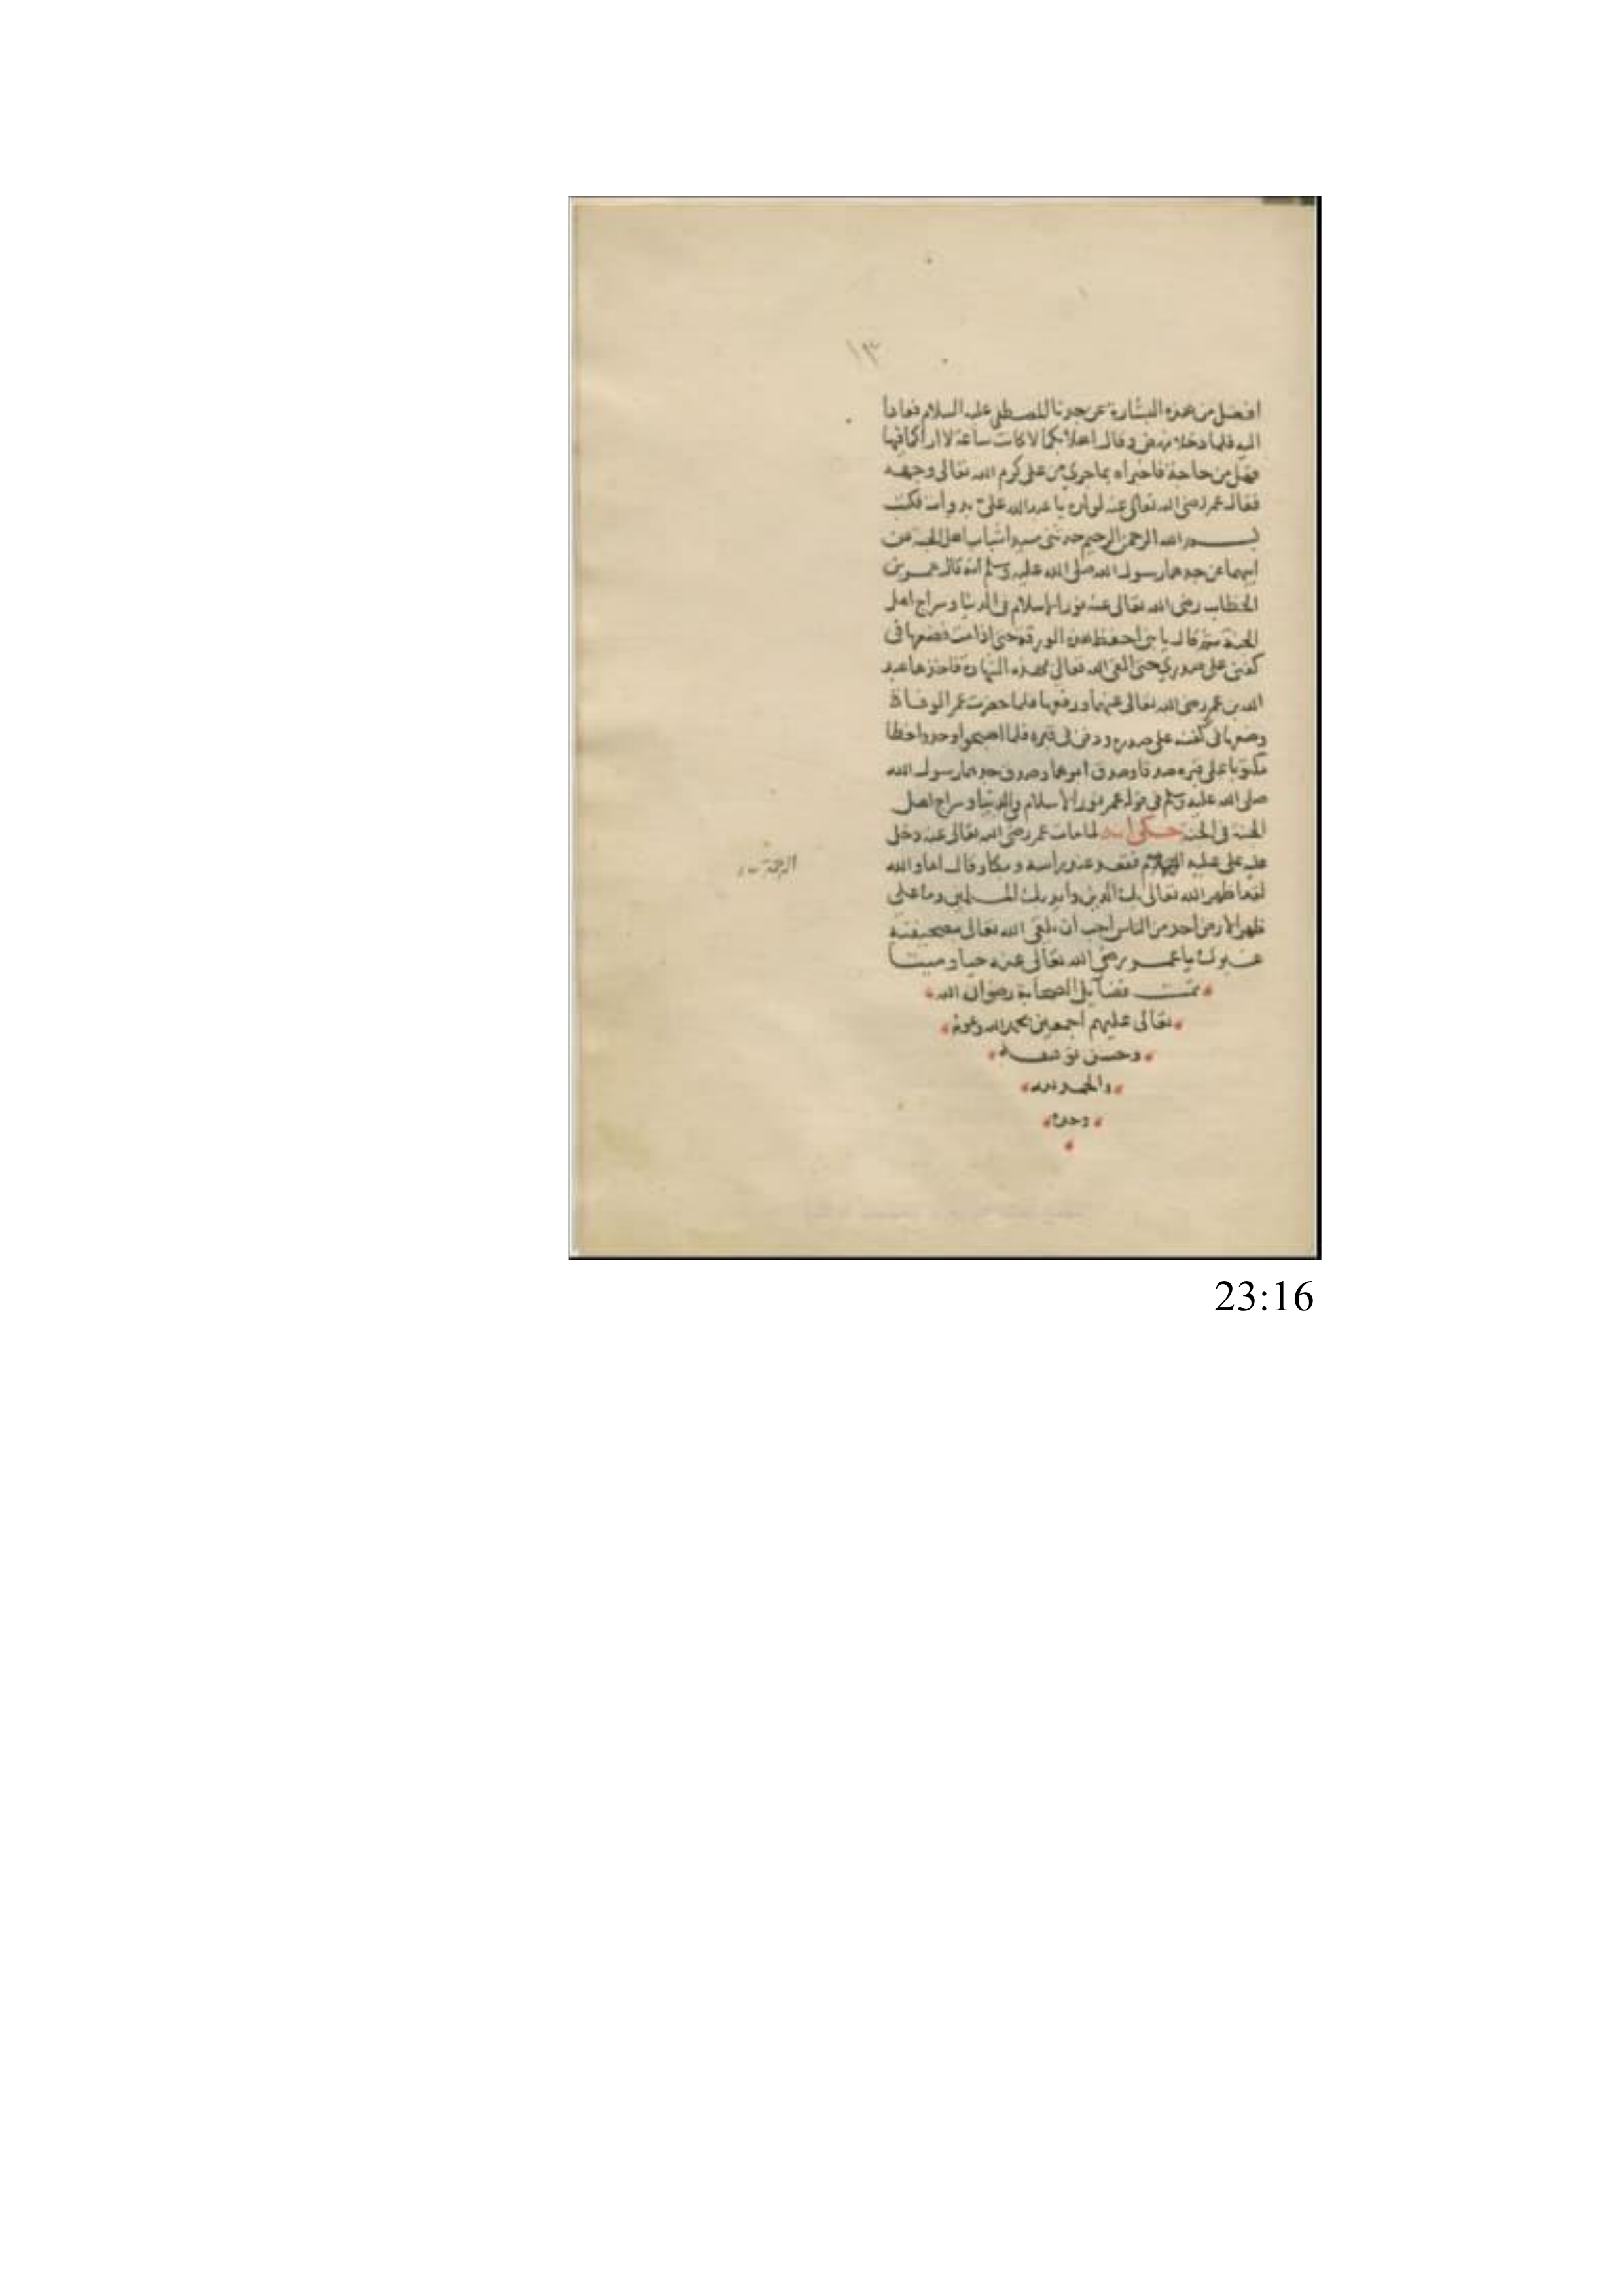 ١٣
افضل من هذه البشارة عن جدنا المصطفى عليه السلام فعادا
اليه فلما دخلا نهض وقال اهلا بكما لا كانت ساعة لا اراكما فيها
فهل من حاجة فاخبراه بما جرى من على كرم الله تعالى وجهه
فقال عمر رضى الله تعالى عنه لولده يا عبد الله علىّ بدواة فكتب
بسم الله الرحمن الرحيم حدثنى سيدا شباب اهل الجنة عن
ابيهما عن جدهما رسول الله صلى الله عليه وسلم انه قال عمر بن
الخطاب رضى الله تعالى عنه نور الاسلام فى الدنيا وسراج اهل
الجنة ثم قال يا بنى احفظ هذه الورقة حتى اذا مت فضعها فى
كفنى على صدرى حتى القى الله تعالى بهذه الشهادة فاخذها عبد
الله بن عمر رضى الله تعالى عنهما ورفعها فلما حضرت عمر الوفاة
وضعها فى كفنه على صدره ودفن فى قبره فلما اصبحوا وجدوا خطا
مكتوبا على قبره صدقا وصدق ابوهما وصدق جدهما رسول الله
صلى الله عليه وسلم فى قوله عمر نور الاسلام فى الدنيا وسراج اهل
الجنة فى الجنة حكى انه لما مات عمر رضى الله تعالى عنه دخل
عليه على عليه السلام فقعد عند راسه وبكا وقال اما والله
لقد اظهر الله تعالى بك الدين وايد بك المسلمين وما على
ظهر الارض احد من الناس احب ان يلقى الله تعالى بصحيفته
غيرك يا عمر رضى الله تعالى عنه حيا وميتا
تمت فضايل الصحابة رضوان الله
تعالى عليهم اجمعين بحمد الله وعونه
وحسن توفيقه
والحمد لله
وحده
23:16